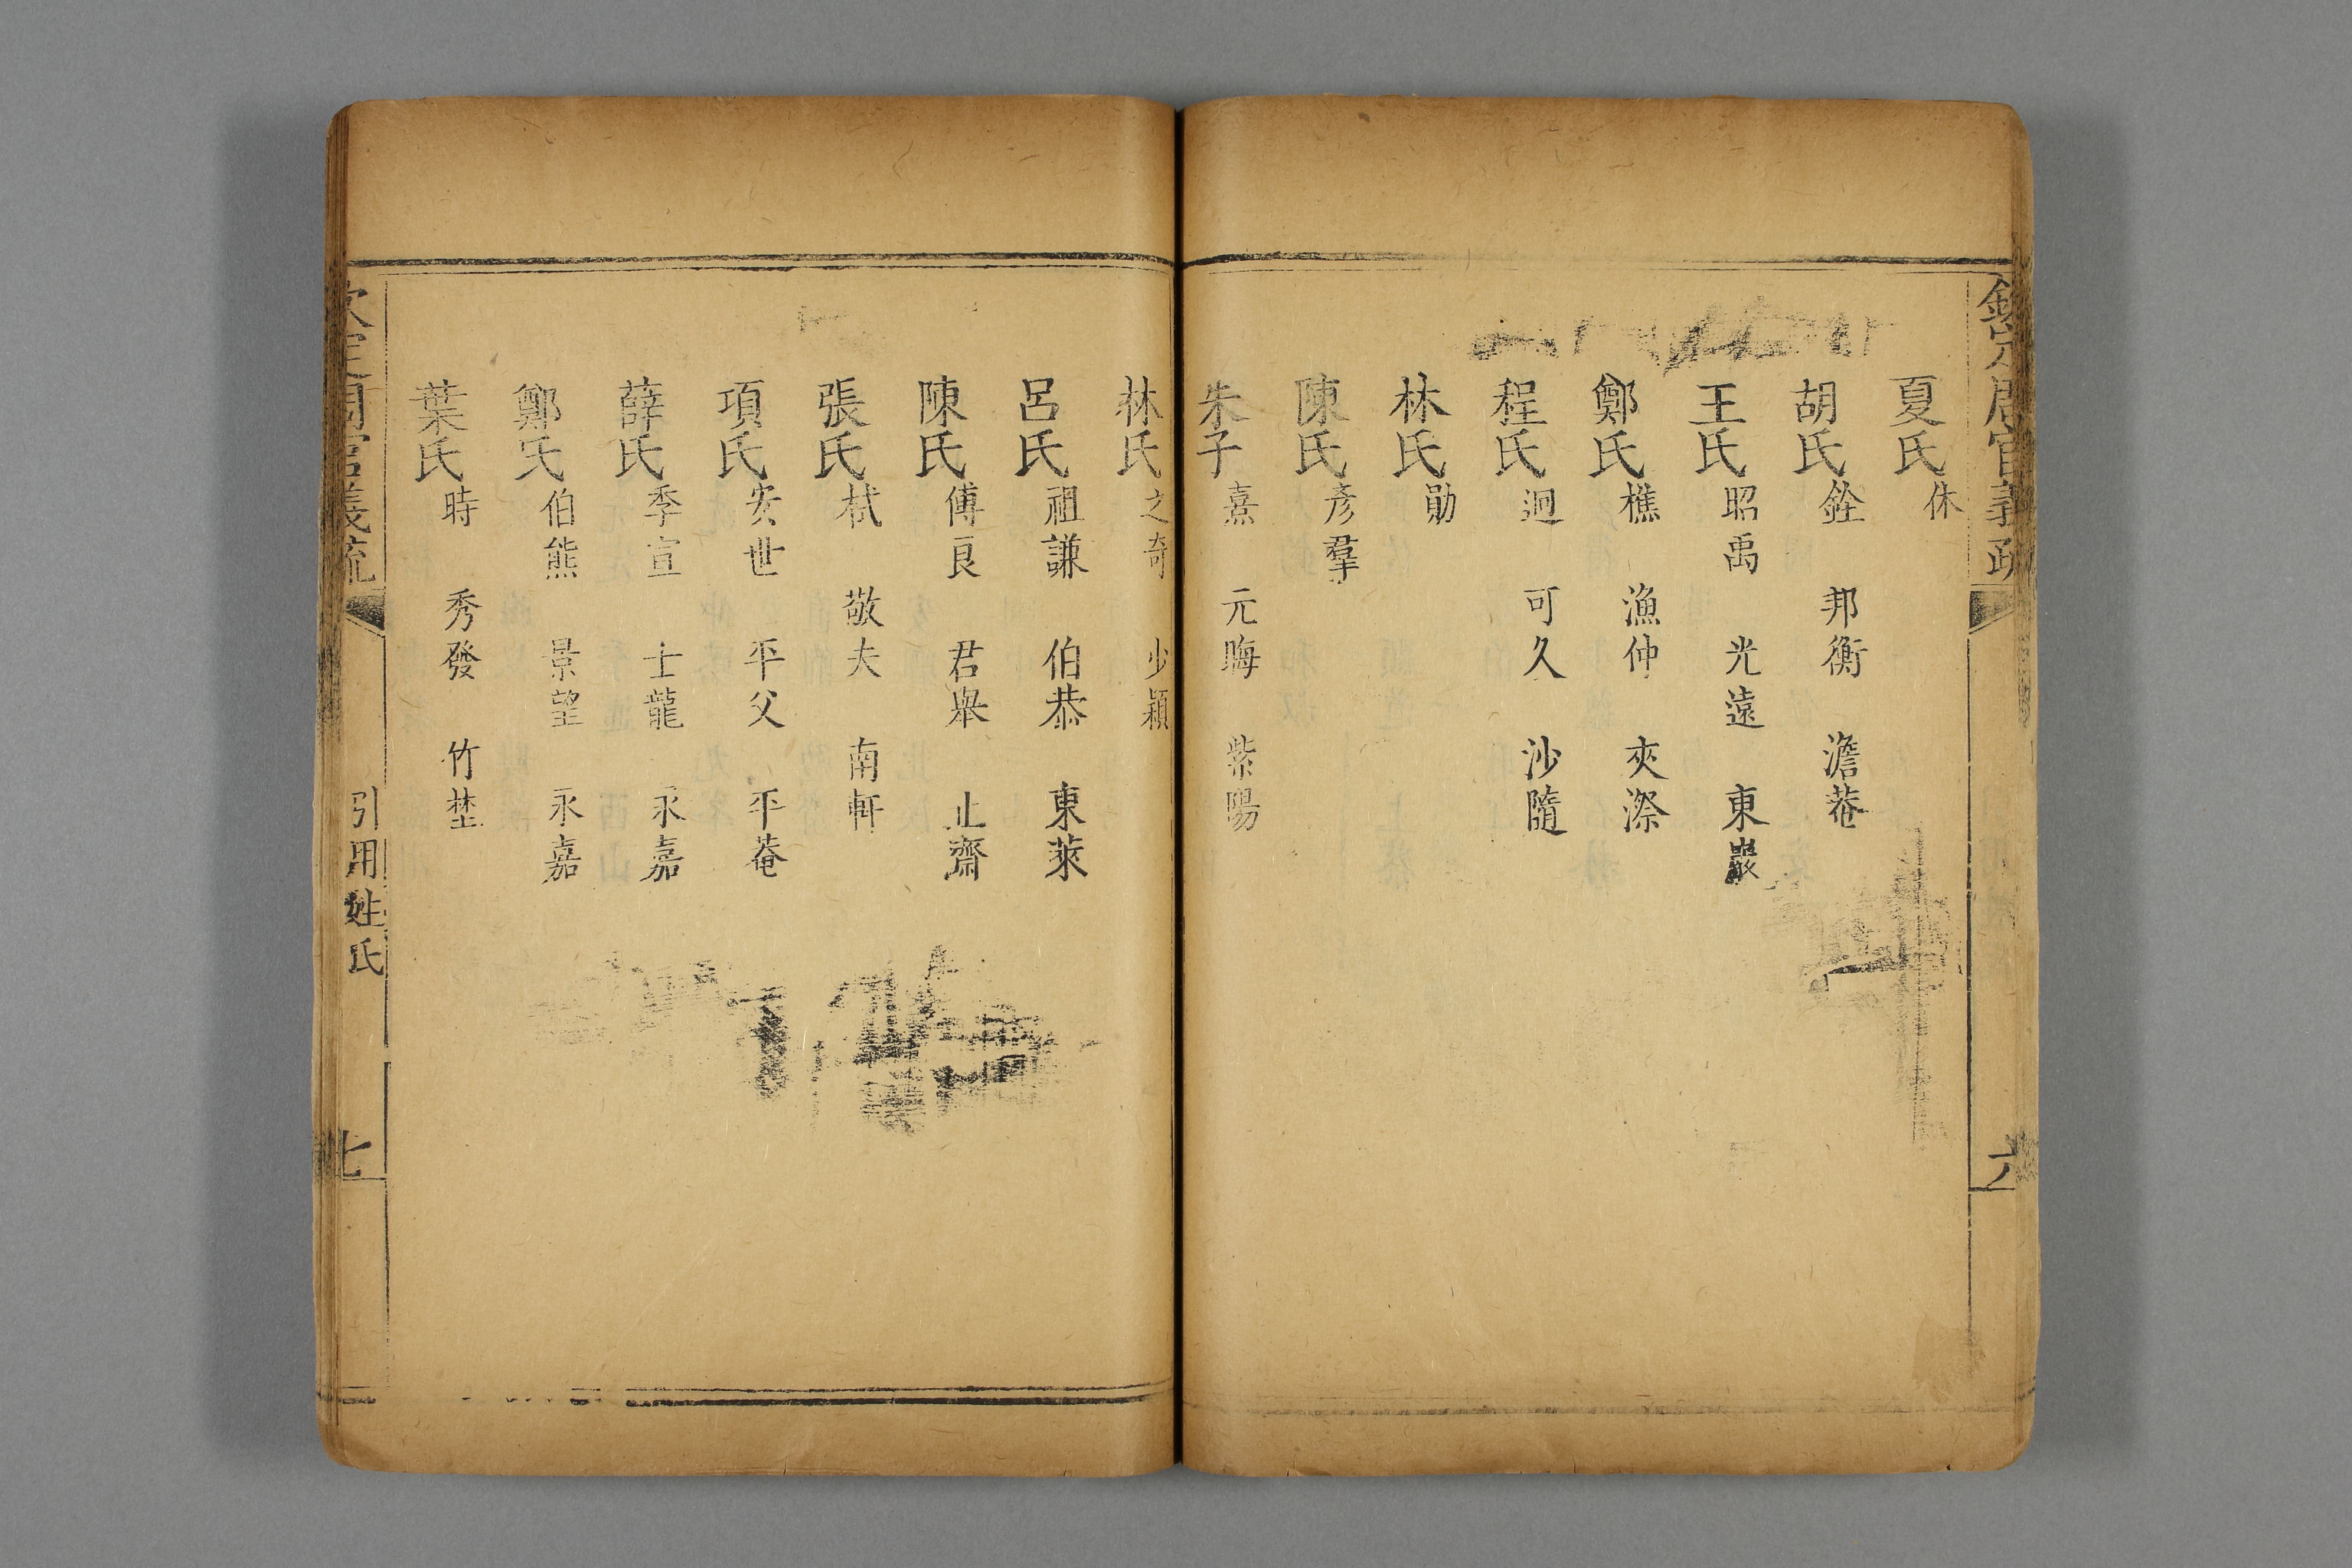 欽定周官義疏
六
夏氏休
胡氏銓 邦衡 澹菴
王氏昭禹 光遠 東巖
鄭氏樵 漁仲 夾漈
程氏迥 可久 沙隨
林氏勛
陳氏彥羣
朱子熹 元晦 紫陽
林氏之奇 少穎
呂氏祖謙 伯恭 東萊
陳氏傅良 君舉 止齋
張氏栻 敬夫 南軒
項氏安世 平父 平菴
薛氏季宣 士龍 永嘉
鄭氏伯熊 景望 永嘉
葉氏時 秀發 竹埜
欽定周官義疏 引用姓氏 七